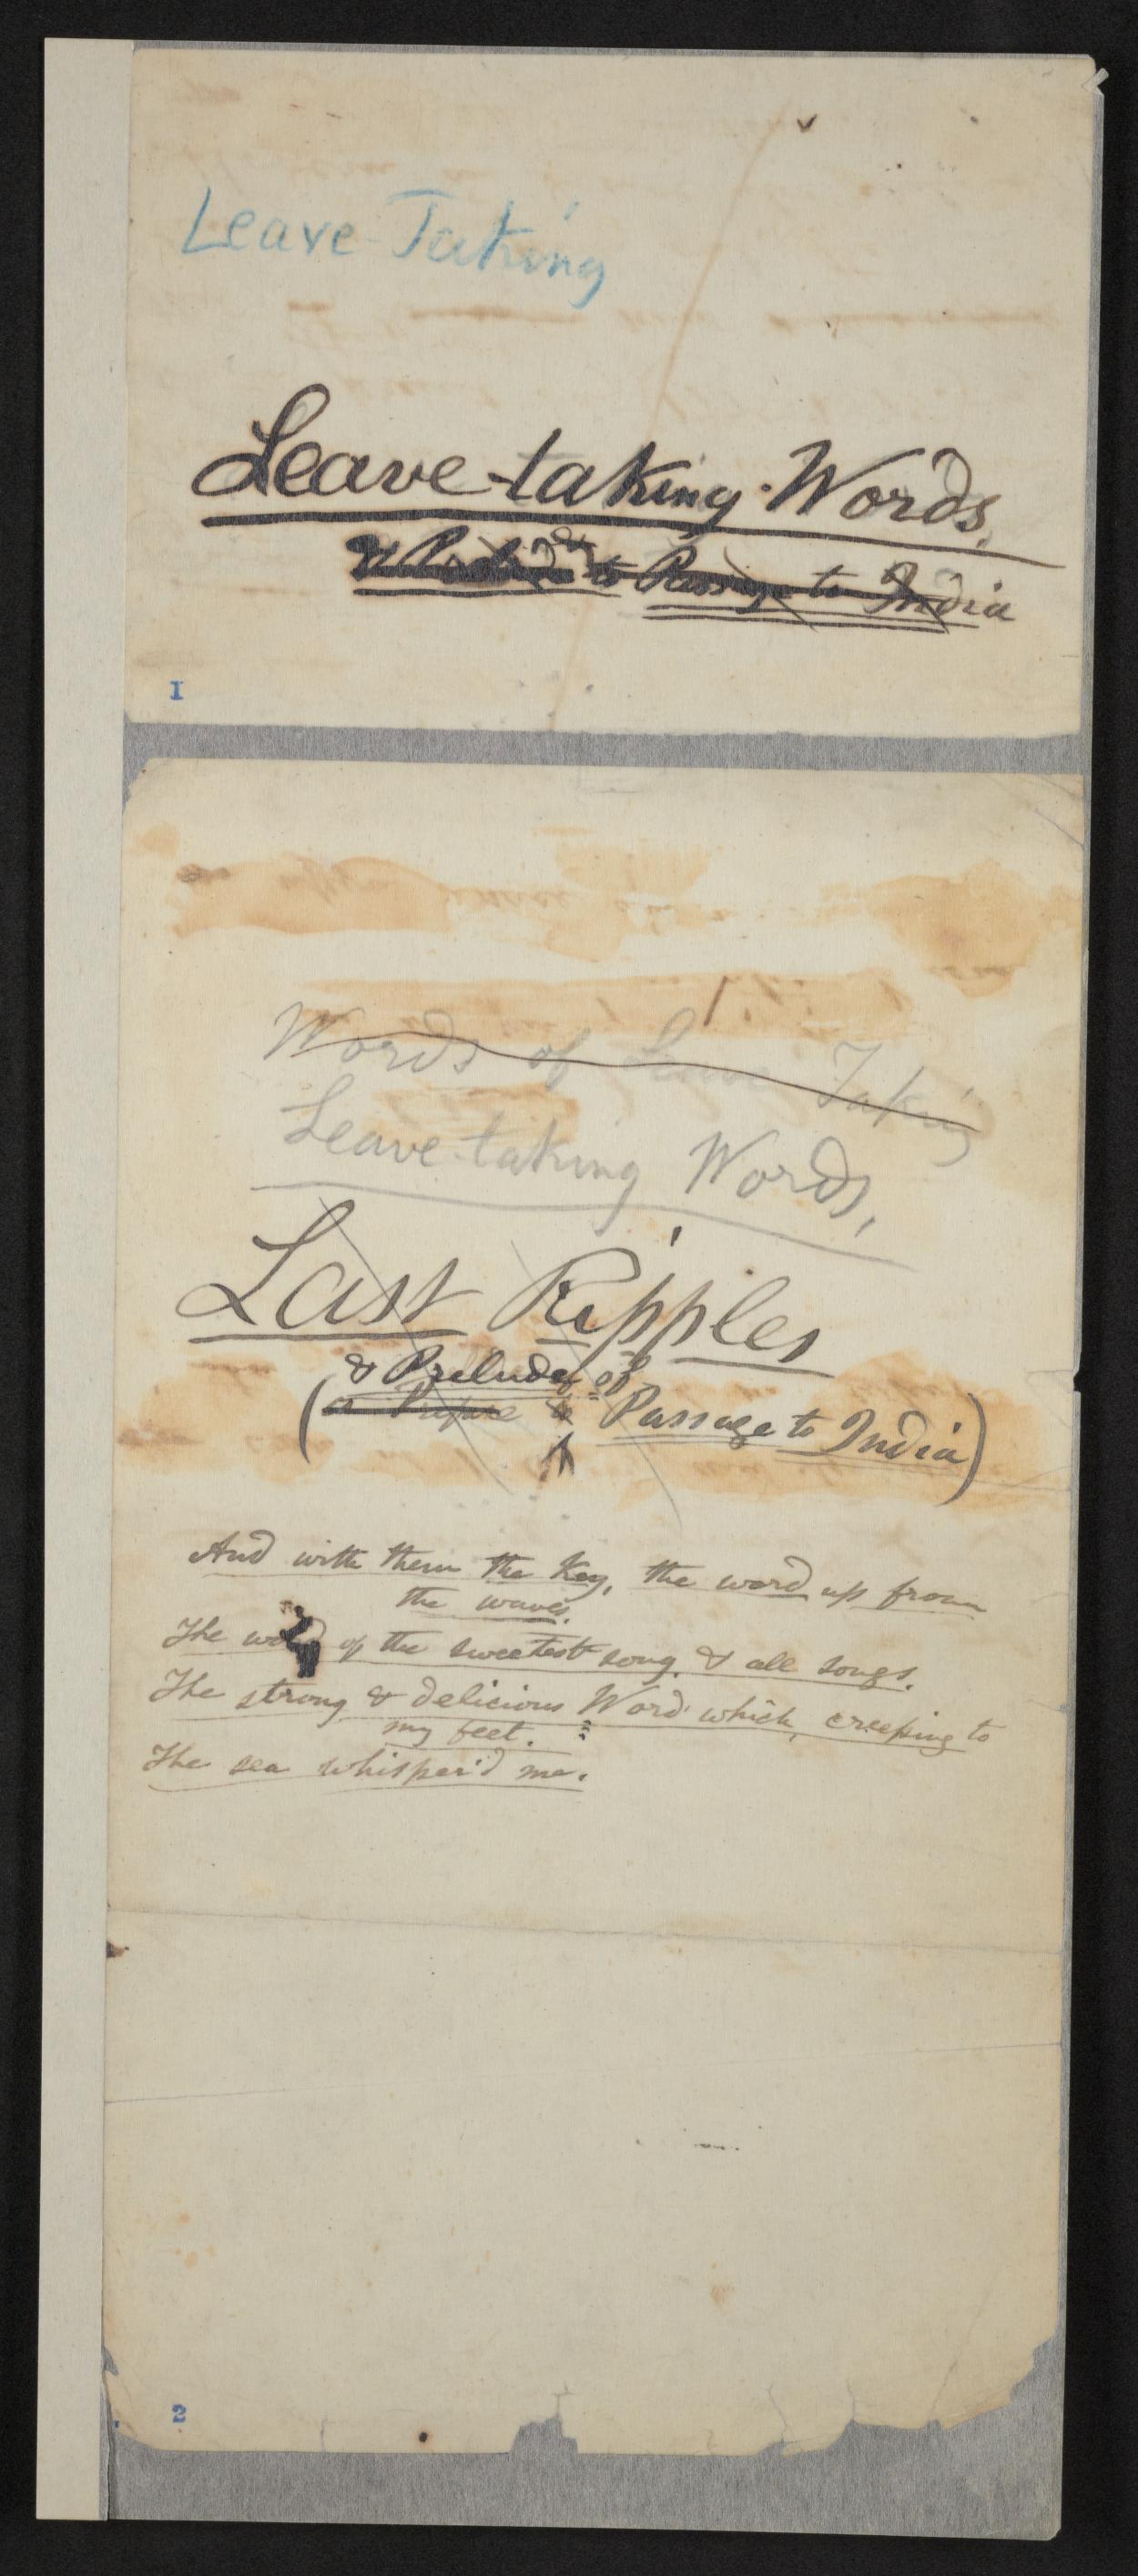 Leave-Taking
Leave-taking Words.
& Prelude to Passage to India
1
Words of Leave Taking
Leave-taking Words,
Last Ripples
& Prelude of
(or to Passage to India)
And with them the Key, the word up from
the waves.
The word of the sweetest song, & all songs.
The strong & delicious Word which, creeping to
my feet.
The sea whisper'd me.
2